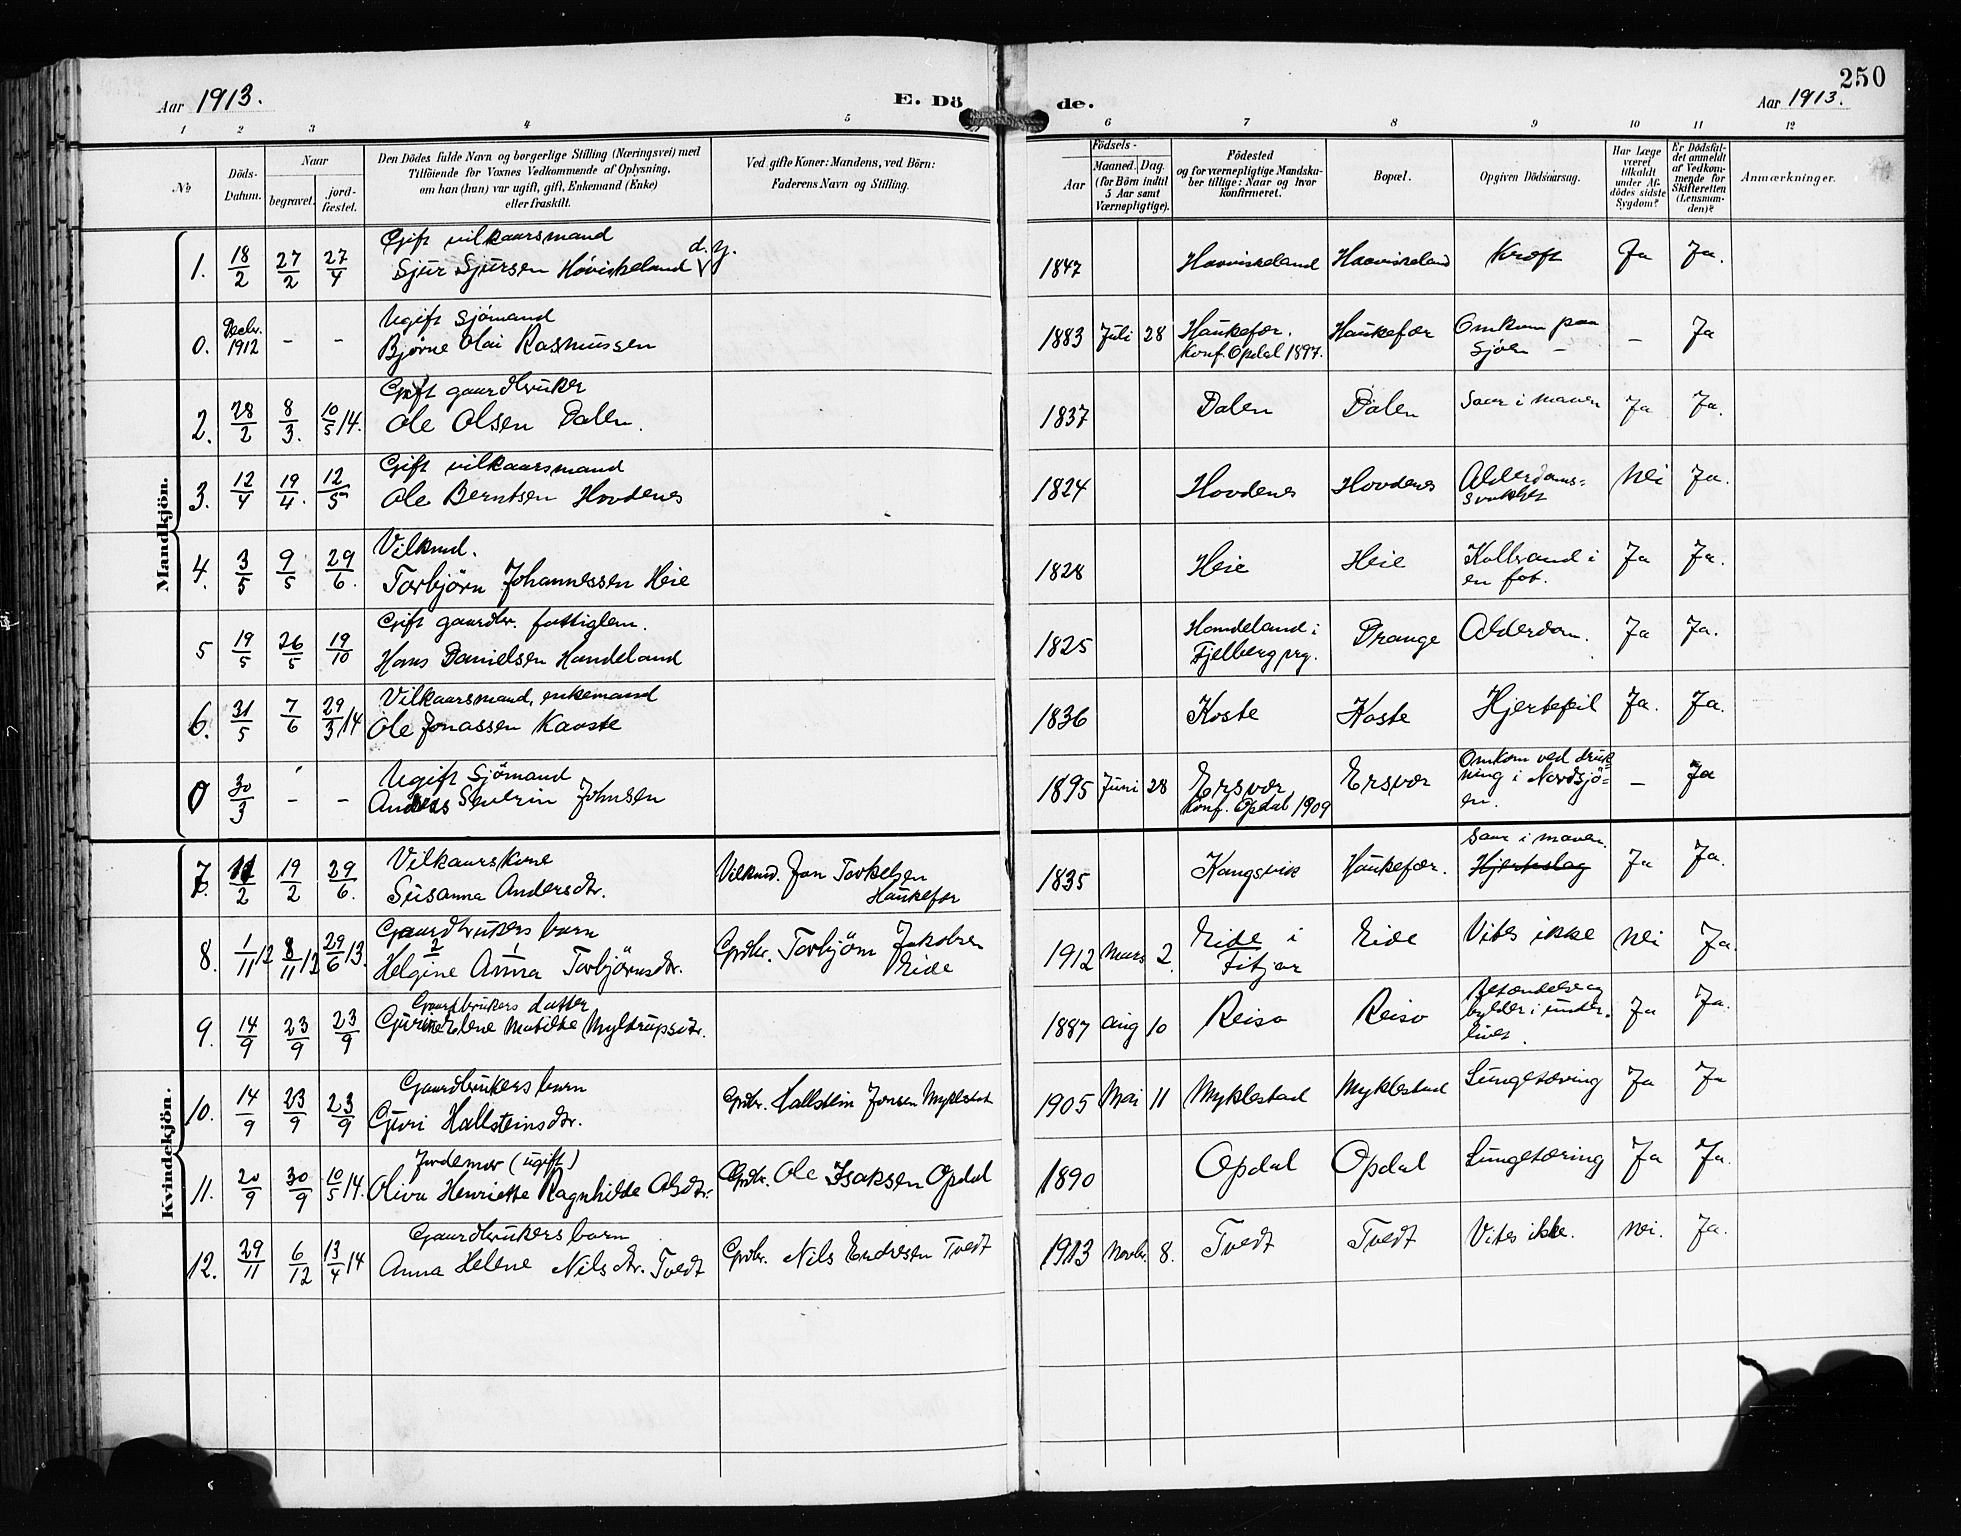 250
Aar 1913. E. Dö de. Aar 1913.
1 2 3 4 5 6 7 8 9 10 11 12
No
Döds-Datum.
Naar
begravet.
jord-fæstet.
Den Dödes fulde Navn og borgerlige Stilling (Næringsvei) med
Tilföiende for Voxnes Vedkommende af Oplysning,
om han (hun) var ugift, gift, Enkemand (Enke)
eller fraskilt.
Ved gifte Koner: Mandens, ved Börn:
Faderens Navn og Stilling.
Födsels-
Aar
Maaned. Dag.
(for Börn indtil
5 Aar samt
Værnepligtige).
Födested
og for værnepligtige Mandska-
ber tillige: Naar og hvor
konfirmeret.
Bopæl.
Opgiven Dödsaarsag.
Har Læge
været
tilkaldt
under Af-
dödes sidste
Sygdom?
Er Dödsfal-
det anmeldt
af Vedkom-
mende for
Skifteretten
(Lensman-
den)?
Anmærkninger.
Mandkjön.
Gift vilkaarsmand
1. 18/2 27/2 27/4 Sjur Sjursen Hoviskeland d. y. 1847 Haaviskeland Haaviskeland Kræft Ja Ja.
Ugift Sjömand
0. Decbr. 1912 - - Bjørne Olai Rasmussen 1883 Juli 28 Haukefær. Konf. Opdal 1897. Haukefær Omkom paa Sjöen - - Ja
Gift gaardbruker
2. 28/2 8/3. 10/5 14. Ole Olsen Dalen. 1837 Dalen Dalen Saar i maven Ja Ja.
Gift vilkaarsmand
3. 12/4 19/4. 12/5 Ole Berntsen Hovdenes 1824 Hovdenes Hovdenes Alderdoms= svakhet Nei Ja.
Vilkmd.
4. 3/5 9/5 29/6. Torbjörn Johannessen Heie 1828 Heie Heie Kolbrand i en fot. Ja Ja.
Gift gaardbr. fattiglem.
5 19/5 26/5 19/10 Hans Danielsen Handeland 1825 Handeland i Fjelberg prg. Drange Alderdom. Ja Ja.
Vilkaarsmand, enkemand
6. 31/5 7/6 29/3 14 Ole Jonassen Kaaste 1836 Koste Koste Hjertefeil Ja. Ja.
Ugift Sjömand
0 30/3 - - Anders Severin Johnsen 1895 Juni 28 Ersvær Konf. Opdal 1909 Ersvær Omkom ved druk ning i Nordsjö= en. - Ja
Kvindekjön.
Vilkaarskone
7. 11/2 19/2 29/6. Susanna Andersdtr. Vilkmd. Jon Torkelsen Haukefær 1835 Kongsvik Haukefær. Saar i maven. Hjerteslag Ja Ja.
Gaardbrukers barn
8. 1/11 12 8/11 12 29/6 13. 2 1 Helgine Anna Torbjörnsdtr. Grdbr. Torbjörn Jakobsen Eide 1912 Mars 2. Eide i Fitjar Eide Vites ikke Nei Ja.
Gaardbrukers datter
9. 14/9 23/9 23/9 Gurine Elene Matilde Myltrupsdtr. 1887 Aug 10 Reisa Reisa Betændelse og bylder i under= livet. Ja Ja.
Gaardbrukers barn
10. 14/9 23/9 23/9 Guri Hallsteinsdtr. Grdbr. Hallstein Jonsen Myklestad 1905 Mai 11 Myklestad Myklestad Lungetæring Ja Ja
Jordemor (ugift)
11. 20/9 30/9 10/5 14. Oliva Henriette Ragnhilde Olsdtr. Grdbr. Ole Isaksen Opdal 1890 Opdal Opdal Lungetæring Ja Ja.
Gaardbrukers barn
12. 29/11 6/12 13/4 14 Anna Helene Nilsdtr. Tvedt Grdbr. Nils Endresen Tvedt 1913 Novbr. 8. Tvedt Tvedt Vites ikke. Nei. Ja.